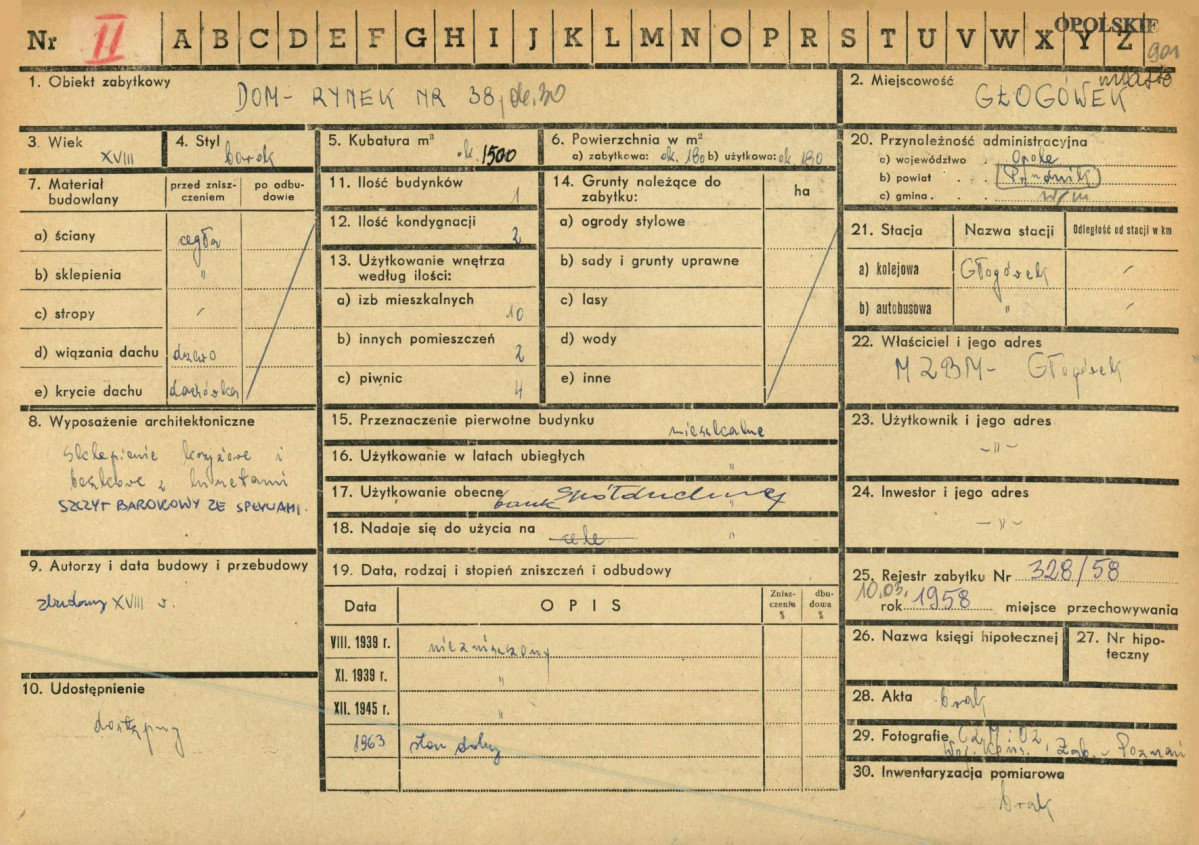 Nr II A B C D E F G H I J K L M N O P R S T U V W X Y Z
OPOLSKIE
901
1. Obiekt zabytkowy
DOM - RYNEK NR 38, ob. 30
2. Miejscowość miasto
GŁOGÓWEK
3. Wiek
XVIII
4. Styl
barok
5. Kubatura m³
ok. 1500
6. Powierzchnia w m²
a) zabytkowa: ok. 180 b) użytkowa: ok 180
7. Materiał budowlany
przed zniszczeniem
po odbudowie
a) ściany cegła
b) sklepienia "
c) stropy "
d) wiązania dachu drzewo
e) krycie dachu dachówka
8. Wyposażenie architektoniczne
Sklepienie krzyżowe i
beczkowe z lunetami
SZCZYT BAROKOWY ZE SPŁYWAMI.
9. Autorzy i data budowy i przebudowy
zbudowany XVIII w.
10. Udostępnienie
dostępny
11. Ilość budynków 1
12. Ilość kondygnacji 2
13. Użytkowanie wnętrza
według ilości:
a) izb mieszkalnych 10
b) innych pomieszczeń 2
c) piwnic 4
14. Grunty należące do
zabytku:
ha
a) ogrody stylowe
b) sady i grunty uprawne
c) lasy
d) wody
e) inne
15. Przeznaczenie pierwotne budynku mieszkalne
16. Użytkowanie w latach ubiegłych "
17. Użytkowanie obecne bank Spółdzielczy "
18. Nadaje się do użycia na cele "
19. Data, rodzaj i stopień zniszczeń i odbudowy
Data
OPIS
Zniszczenia %
dbudowa %
VIII. 1939 r. niezniszczony
XI. 1939 r. "
XII. 1945 r. "
1963 stan dobry
20. Przynależność administracyjna
a) województwo Opole
b) powiat Prudnik
c) gmina w/m
21. Stacja
Nazwa stacji
Odległość od stacji w km
a) kolejowa Głogówek "
b) autobusowa " "
22. Właściciel i jego adres
MZBM - Głogówek
23. Użytkownik i jego adres
- " -
24. Inwestor i jego adres
- " -
25. Rejestr zabytku Nr 328/58
10.03.
rok 1958 miejsce przechowywania
26. Nazwa księgi hipotecznej
27. Nr hipoteczny
28. Akta brak
29. Fotografie CZM i OZ,
Woj. Kons. Zab. - Poznań
30. Inwentaryzacja pomiarowa
brak